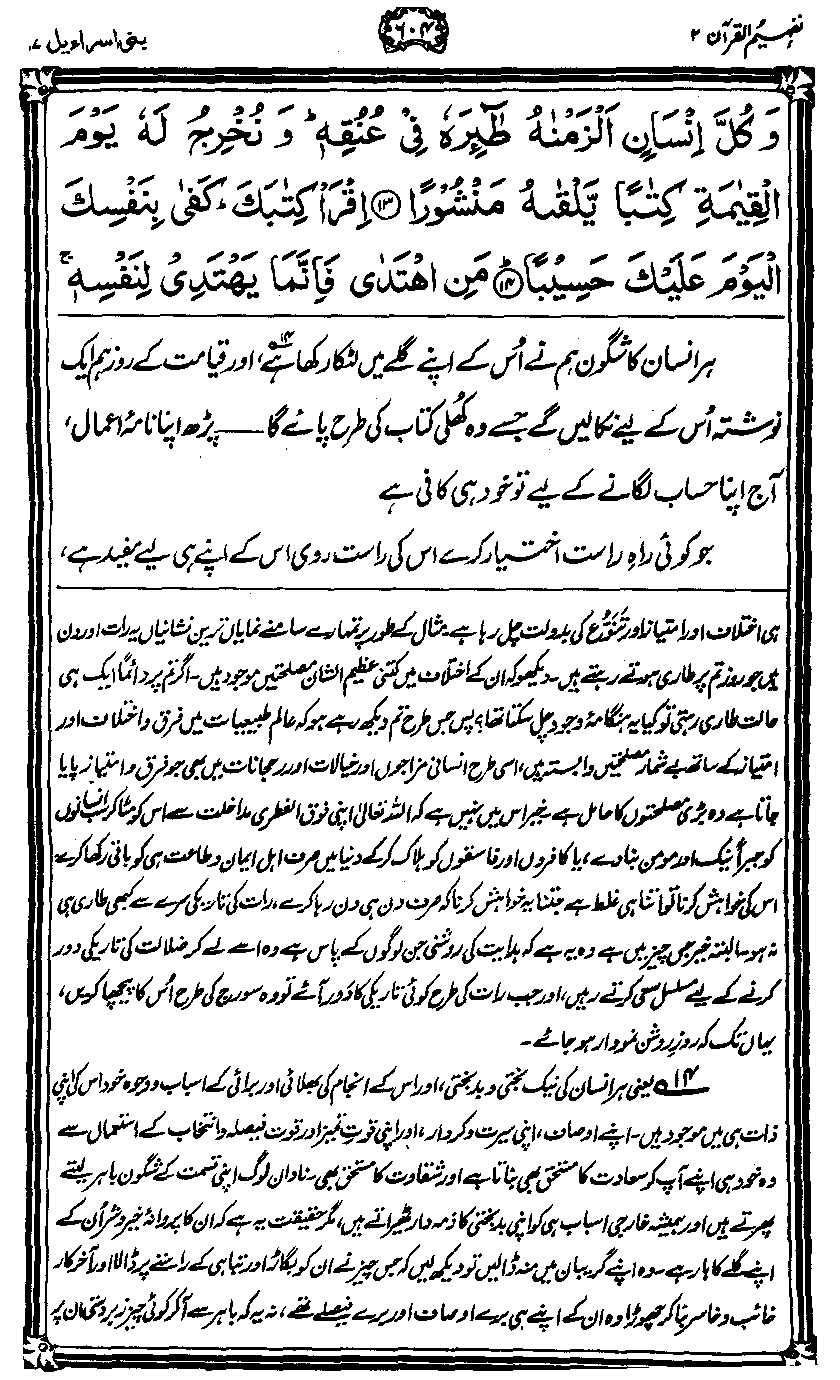 تفہیم القرآن ۲
۶۰۴
بنی اسراءیل ۱۷
وَكُلَّ اِنْسَانٍ اَلْزَمْنٰهُ طٰٓئِرَهٗ فِيْ عُنُقِهٖ ؕ وَ نُخْرِجُ لَهٗ يَوْمَ
الْقِيٰمَةِ كِتٰبًا يَّلْقٰىهُ مَنْشُوْرًا ﴿۱۳﴾ اِقْرَاْ كِتٰبَكَ ؕ كَفٰى بِنَفْسِكَ
الْيَوْمَ عَلَيْكَ حَسِيْبًا ﴿ؕ۱۴﴾ مَنِ اهْتَدٰى فَاِنَّمَا يَهْتَدِيْ لِنَفْسِهٖ ۚ
ہر انسان کا شگون ہم نے اُس کے اپنے گلے میں لٹکا رکھا ہے،۱۴ اور قیامت کے روز ہم ایک
نوشتہ اُس کے لیے نکالیں گے جسے وہ کُھلی کتاب کی طرح پائے گا ــــ پڑھ اپنا نامۂ اعمال،
آج اپنا حساب لگانے کے لیے تو خود ہی کافی ہے
جو کوئی راہِ راست اختیار کرے اس کی راست روی اس کے اپنے ہی لیے مفید ہے،
ہی اختلاف اور امتیاز اور تَنَوُّع کی بدولت چل رہا ہے۔ مثال کے طور پر تمہارے سامنے نمایاں ترین نشانیاں یہ رات اور دن
ہیں جو روز تم پر طاری ہوتے رہتے ہیں۔ دیکھو کہ ان کے اختلاف میں کتنی عظیم الشان مصلحتیں موجود ہیں۔ اگر تم پر دائماً ایک ہی
حالت طاری رہتی تو کیا یہ ہنگامۂ وجود چل سکتا تھا؟ پس جس طرح تم دیکھ رہے ہو کہ عالم طبیعیات میں فرق و اختلاف اور
امتیاز کے ساتھ بے شمار مصلحتیں وابستہ ہیں، اسی طرح انسانی مزاجوں اور خیالات اور رجحانات میں بھی جو فرق و امتیاز پایا
جاتا ہے وہ بڑی مصلحتوں کا حامل ہے۔ خیر اس میں نہیں ہے کہ اللہ تعالیٰ اپنی فوق الفطری مداخلت سے اس کو مٹا کر سب انسانوں
کو جبراً نیک اور مومن بنا دے، یا کافروں اور فاسقوں کو ہلاک کر کے دنیا میں صرف اہل ایمان و طاعت ہی کو باقی رکھا کرے
اس کی خواہش کرنا تو اتنا ہی غلط ہے جتنا یہ خواہش کرنا کہ صرف دن ہی دن رہا کرے، رات کی تاریکی سرے سے کبھی طاری ہی
نہ ہو۔ البتہ خیر جس چیز میں ہے وہ یہ ہے کہ ہدایت کی روشنی جن لوگوں کے پاس ہے وہ اسے لے کر ضلالت کی تاریکی دور
کرنے کے لیے مسلسل سعی کرتے رہیں، اور جب رات کی طرح کوئی تاریکی کا دَور آئے تو وہ سورج کی طرح اُس کا پیچھا کریں،
یہاں تک کہ روزِ روشن نمودار ہو جائے۔
۱۴ یعنی ہر انسان کی نیک بختی و بدبختی، اور اس کے انجام کی بھلائی اور برائی کے اسباب و وجوہ خود اس کی اپنی
ذات ہی میں موجود ہیں۔ اپنے اوصاف، اپنی سیرت و کردار، اور اپنی قوتِ تمیز اور قوت فیصلہ و انتخاب کے استعمال سے
وہ خود ہی اپنے آپ کو سعادت کا مستحق بھی بناتا ہے اور شقاوت کا مستحق بھی۔ نادان لوگ اپنی قسمت کے شگون باہر لیتے
پھرتے ہیں اور ہمیشہ خارجی اسباب ہی کو اپنی بدبختی کا ذمہ دار ٹھیراتے ہیں، مگر حقیقت یہ ہے کہ ان کا پروانۂ خیر و شر اُن کے
اپنے گلے کا ہار ہے۔ وہ اپنے گریبان میں منہ ڈالیں تو دیکھ لیں کہ جس چیز نے ان کو بگاڑ اور تباہی کے راستے پر ڈالا اور آخر کار
خائب و خاسر بنا کر چھوڑا وہ ان کے اپنے ہی برے اوصاف اور برے فیصلے تھے، نہ یہ کہ باہر سے آکر کوئی چیز زبردستی ان پر